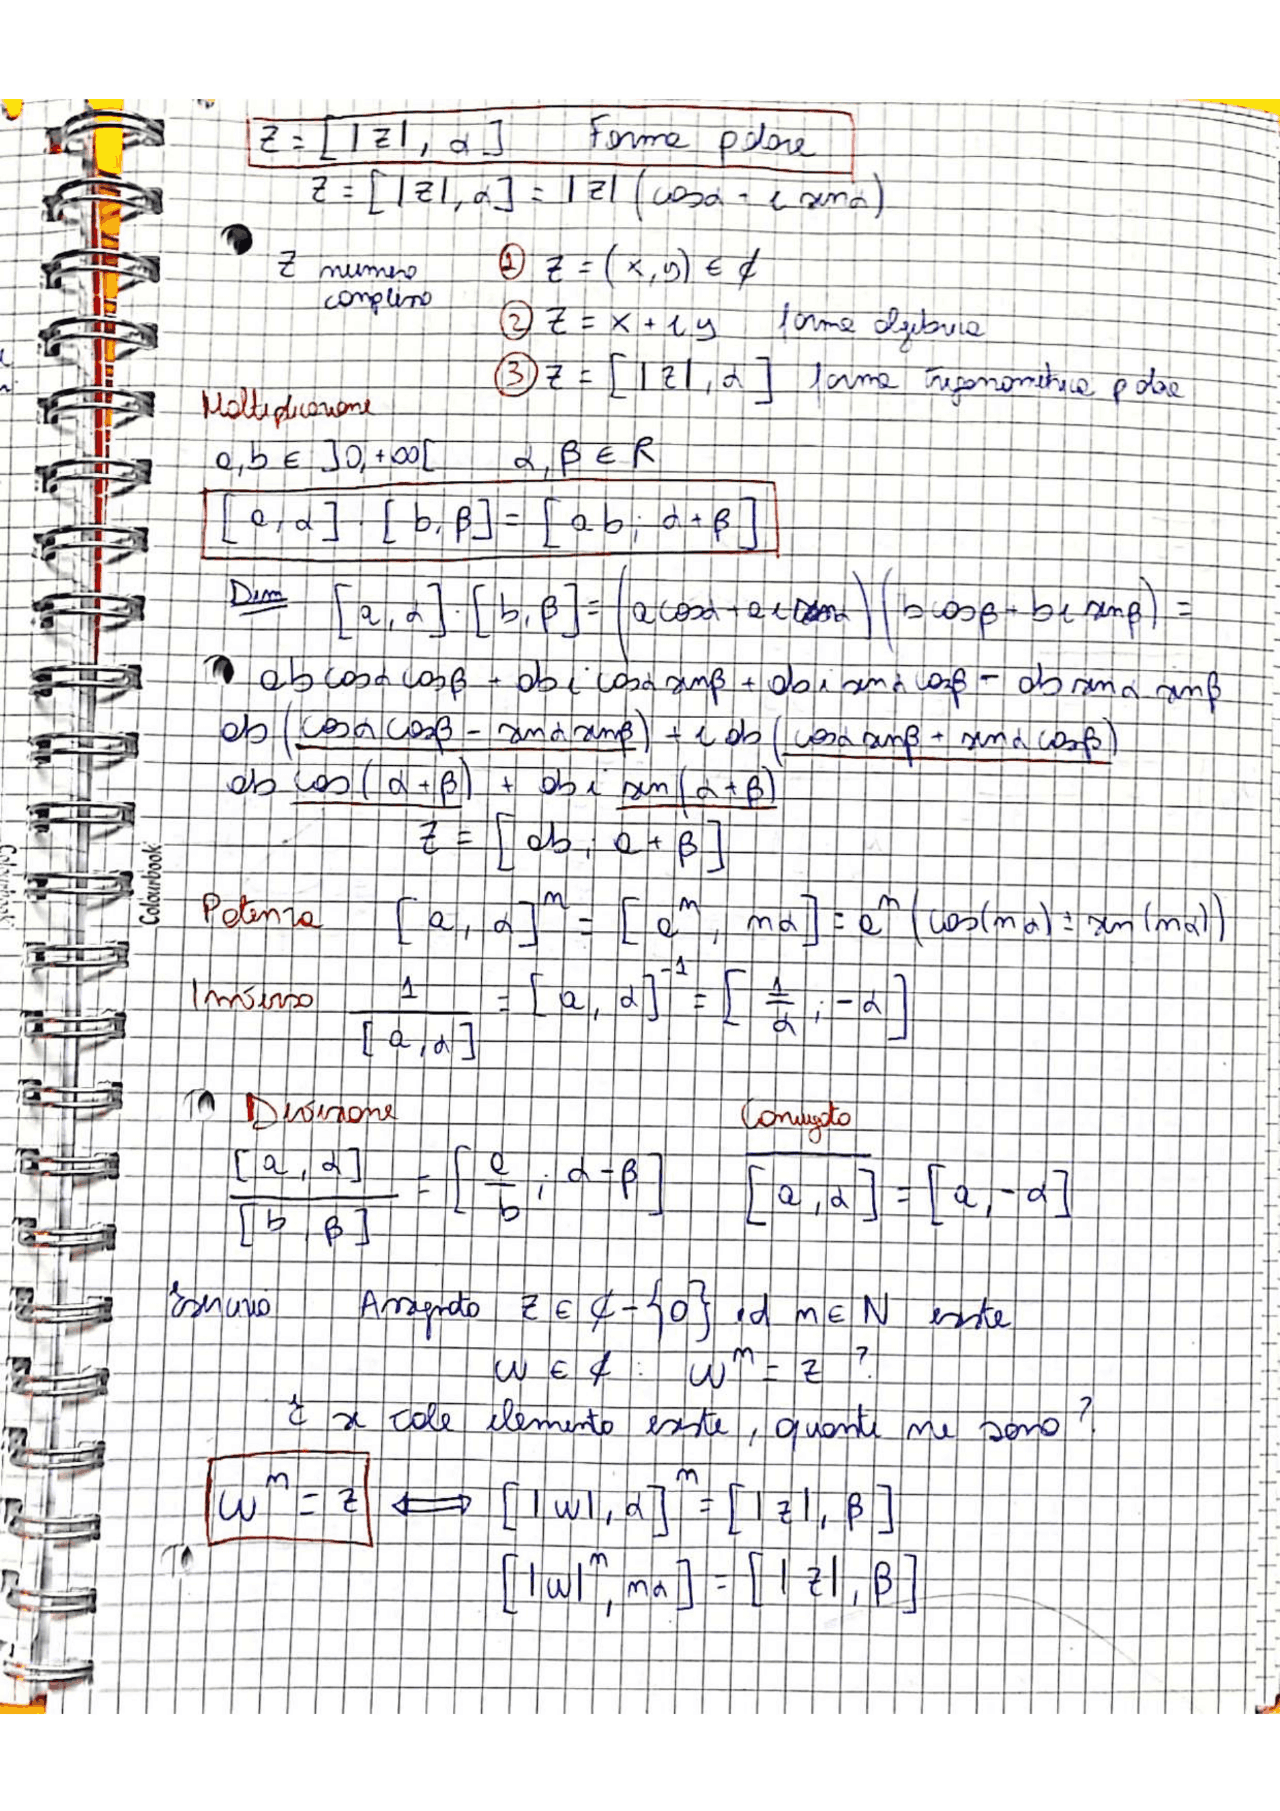 z = [ |z| , α ] Forma polare
z = [ |z| , α ] = |z| ( cosα - i senα )
z numero complesso
① z = ( x , y ) ∈ ₵
② z = x + i y forma algebrica
③ z = [ |z| , α ] forma trigonometrica polare
Moltiplicazione
a, b ∈ ]0, +∞[ α, β ∈ R
[ a , α ] · [ b , β ] = [ a b ; α + β ]
Dim [ a , α ] · [ b , β ] = ( a cosα + a i senα ) ( b cosβ + b i senβ ) =
ab cosα cosβ + ab i cosα senβ + ab i senα cosβ - ab senα senβ
ab ( cosα cosβ - senα senβ ) + i ab ( cosα senβ + senα cosβ )
ab cos ( α + β ) + ab i sen ( α + β )
z = [ ab ; a + β ]
Colourbook
Potenza [ a , α ]ⁿ = [ aⁿ , nα ] = aⁿ ( cos(nα) ± sen(nα) )
Inverso 1/[ a , α ] = [ a , α ]⁻¹ = [ 1/α ; -α ]
Divisione Coniugato
[ a , α ] / [ b , β ] = [ a/b ; α - β ] \overline{[ a , α ]} = [ a , -α ]
Assegnato z ∈ ₵ - {0} ed n ∈ N esiste
w ∈ ₵ : wⁿ = z ?
E se tale elemento esiste , quanti ne sono ?
wⁿ = z ⟺ [ |w| , α ]ⁿ = [ |z| , β ]
[ |w|ⁿ , nα ] = [ |z| , β ]